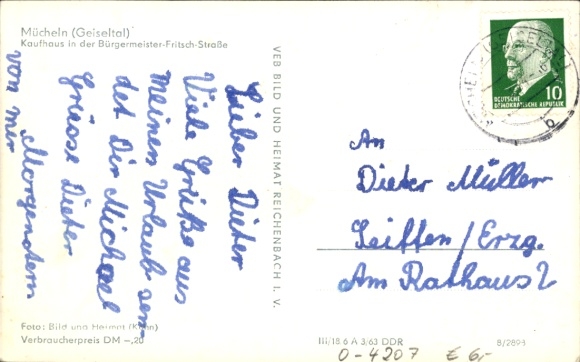 Mücheln (Geiseltal)
Kaufhaus in der Bürgermeister-Fritsch-Straße
Lieber Dieter
Viele Grüße aus
meinen Urlaub sen-
det Dir Michael
Grüsse Dieter
von mir
Morgenstern
VEB BILD UND HEIMAT REICHENBACH I. V.
10
DEUTSCHE
DEMOKRATISCHE REPUBLIK
b
An
Dieter Müller
Seiffen/Erzg.
Am Rathaus 2
Foto: Bild und Heimat (Kühn)
Verbraucherpreis DM –,20
III/18 6 A 3/63 DDR
8/2898
O-4207 € 6,-